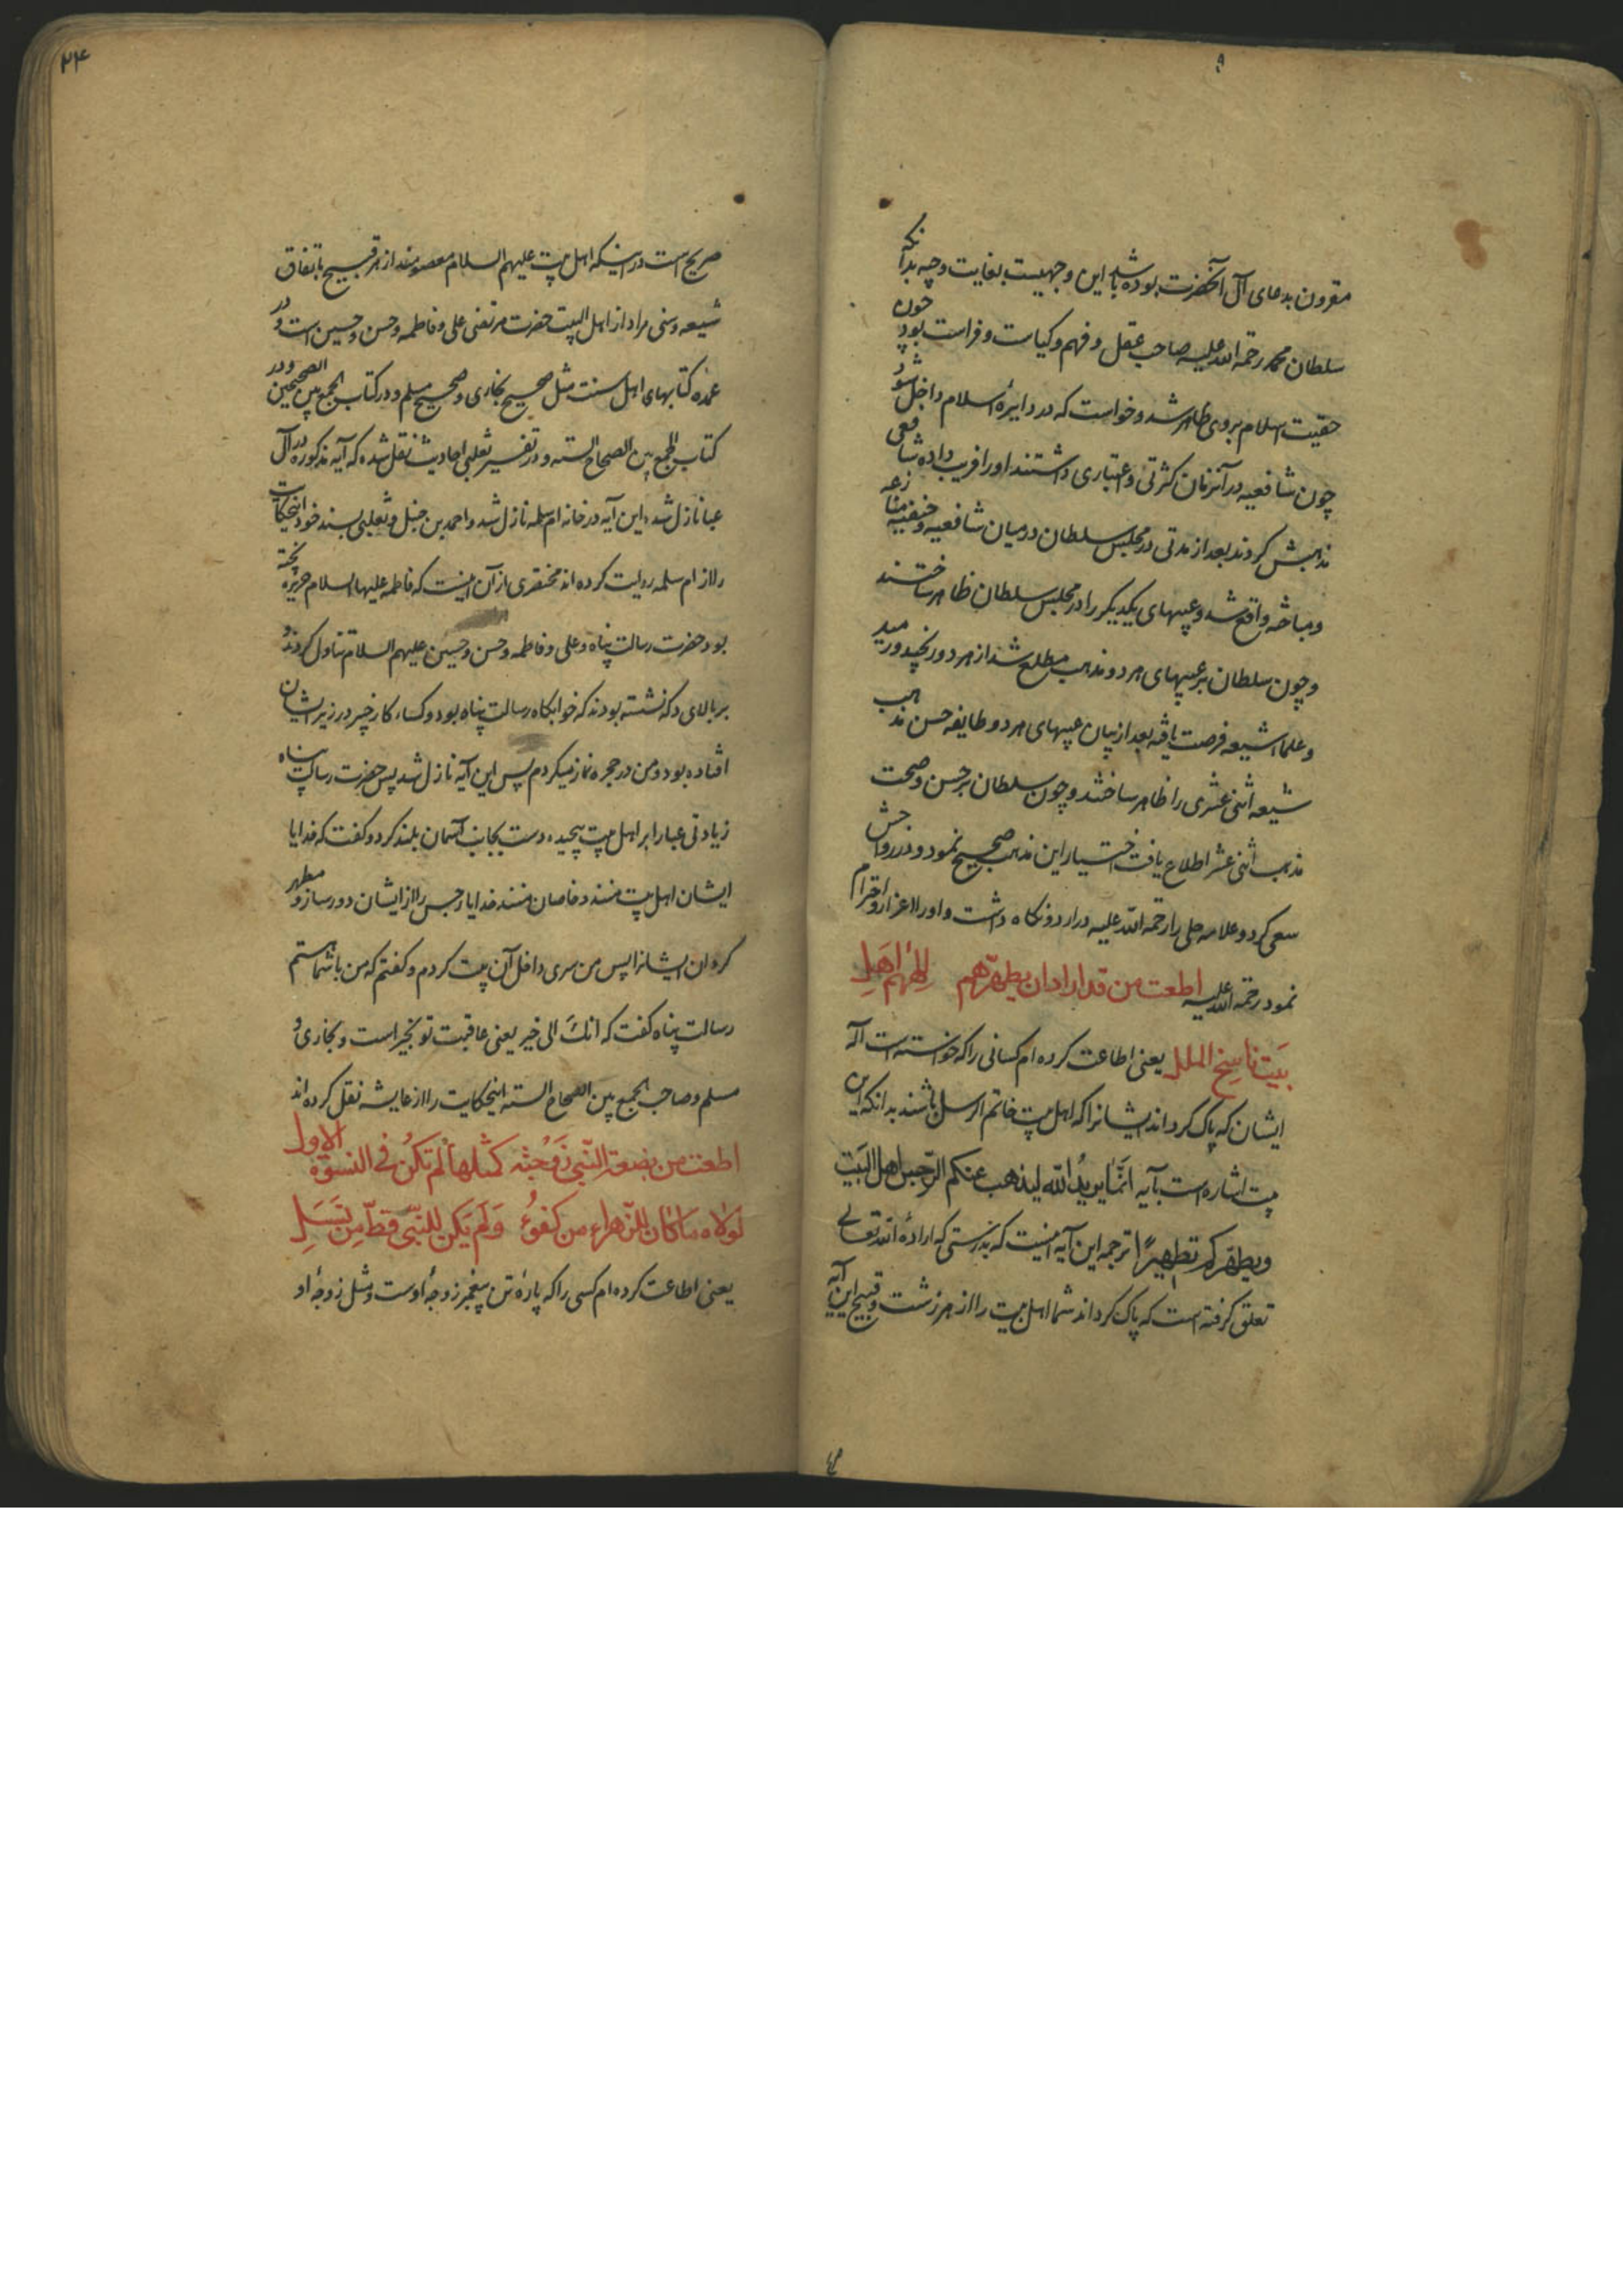 مقرون بدعای آل آنحضرت بوده باشد این وجهیست بغایت وجیه بدانکه
سلطان محمد رحمة الله علیه صاحب عقل و فهم و کیاست و فراست بود چون
حقیت اسلام بروی ظاهر شد و خواست که در دایرهٔ اسلام داخل شود
چون شافعیه در آنزمان کثرتی و اعتباری داشتند او را فریب داده شافعی
مذهبش کردند بعد از مدتی در مجلس سلطان در میان شافعیه و حنفیه منازعه
و مباحثه واقع شد و عیبهای یکدیگر را در مجلس سلطان ظاهر ساختند
و چون سلطان بر عیبهای هر دو مذهب مطلع شد از هر دو رنجید و رمید
و علماء شیعه فرصت یافته بعد از بیان عیبهای هر دو طایفه حسن مذهب
شیعه اثنی عشری را ظاهر ساختند و چون سلطان بر حسن و صحت
مذهب اثنی عشر اطلاع یافت اختیار این مذهب صحیح نمود و در رواجش
سعی کرد و علامه حلی را رحمة الله علیه در اردو نگاه داشت و او را اعزاز و احترام
نمود رحمة الله علیه اطعت من قد اراد ان یطهرهم الههم اهل
بیت ناسخ الملل یعنی اطاعت کرده ام کسانی را که خواسته است اله
ایشان که پاک گرداند ایشانرا که اهل بیت خاتم الرسل باشند بدانکه این
بیت اشاره است بآیه انما یرید الله لیذهب عنکم الرجس اهل البیت
ویطهرکم تطهیرا ترجمه این آیه اینست که بدرستی که ارادهٔ الله تعالی
تعلق گرفته است که پاک گرداند شما اهل بیت را از هر زشت و قبیح این آیه
۲۴
صریح است در اینکه اهل بیت علیهم السلام معصومند از هر قبیح باتفاق
شیعه و سنی مراد از اهل البیت حضرت مرتضی علی و فاطمه و حسن و حسین است و در
عمده کتابهای اهل سنت مثل صحیح بخاری و صحیح مسلم و در کتاب الجمع بین الصحیحین و در
کتاب الجمع بین الصحاح السته و در تفسیر ثعلبی احادیث نقل شده که آیه مذکوره در آل
عبا نازل شد این آیه در خانه ام سلمه نازل شد و احمد بن حنبل و ثعلبی بسند خود اینحکایت
را از ام سلمه روایت کرده اند مختصری از آن اینست که فاطمه علیها السلام حریره پخته
بود حضرت رسالت پناه و علی و فاطمه و حسن و حسین علیهم السلام تناول کردند و
بر بالای دکه نشسته بودند که خوابگاه رسالت پناه بود و کساء کار خیبر در زیر ایشان
افتاده بود و من در حجره نماز میکردم پس این آیه نازل شد پس حضرت رسالت پناه
زیادتی عبا را بر اهل بیت پیچیده دست بجانب آسمان بلند کرد و گفت که خدایا
ایشان اهل بیت منند و خاصان منند خدایا رجس را از ایشان دور ساز و مطهر
گردان ایشانرا پس من سری داخل آن بیت کردم و گفتم که من با شما هستم
رسالت پناه گفت که انک الی خیر یعنی عاقبت تو بخیر است و بخاری و
مسلم و صاحب الجمع بین الصحاح السته اینحکایت را از عایشه نقل کرده اند
اطعت من بضعة النبی زوجته کمثلها لم تکن فی النسوة الاول
لولاه ما کان للزهراء من کفوء ولم یکن للنبی قط من نسل
یعنی اطاعت کرده ام کسی را که پارهٔ تن پیغمبر زوجهٔ اوست و مثل زوجهٔ او